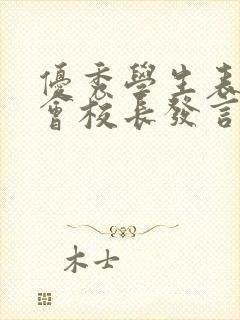 優秀學生表
會校長發言
木士